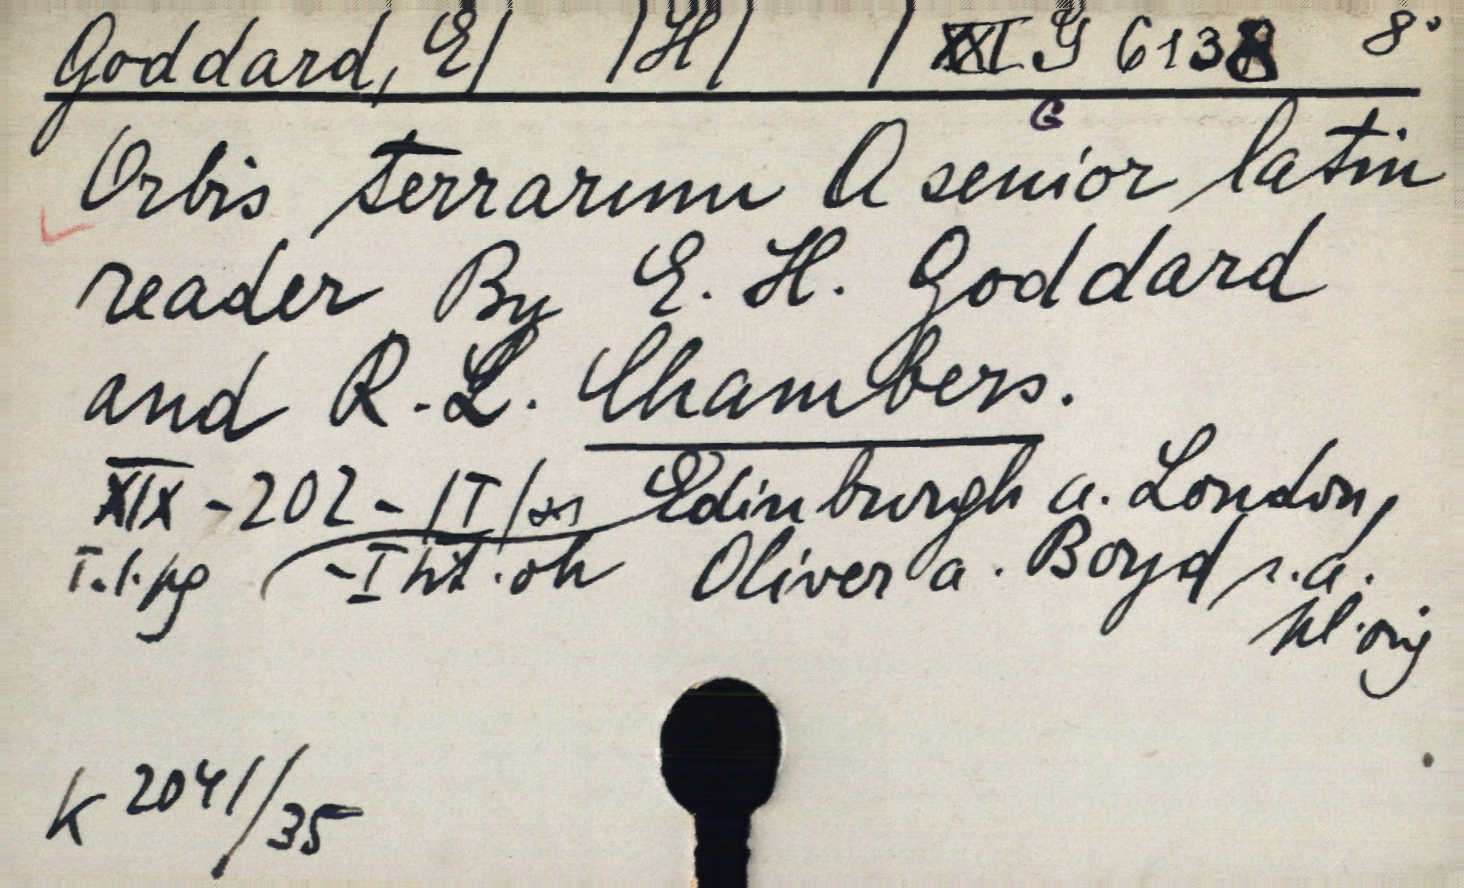 Goddard, E/ /H/ / XXI G 6138 8°
G
Orbis terrarum A senior latin
reader By E. H. Goddard
and R. L. Chambers.
XIX - 202 - /T/ Edinburgh a. London,
T. 1. pg - I ht. oh Oliver a. Boyd s. a.
hl. orig
K 2041/35